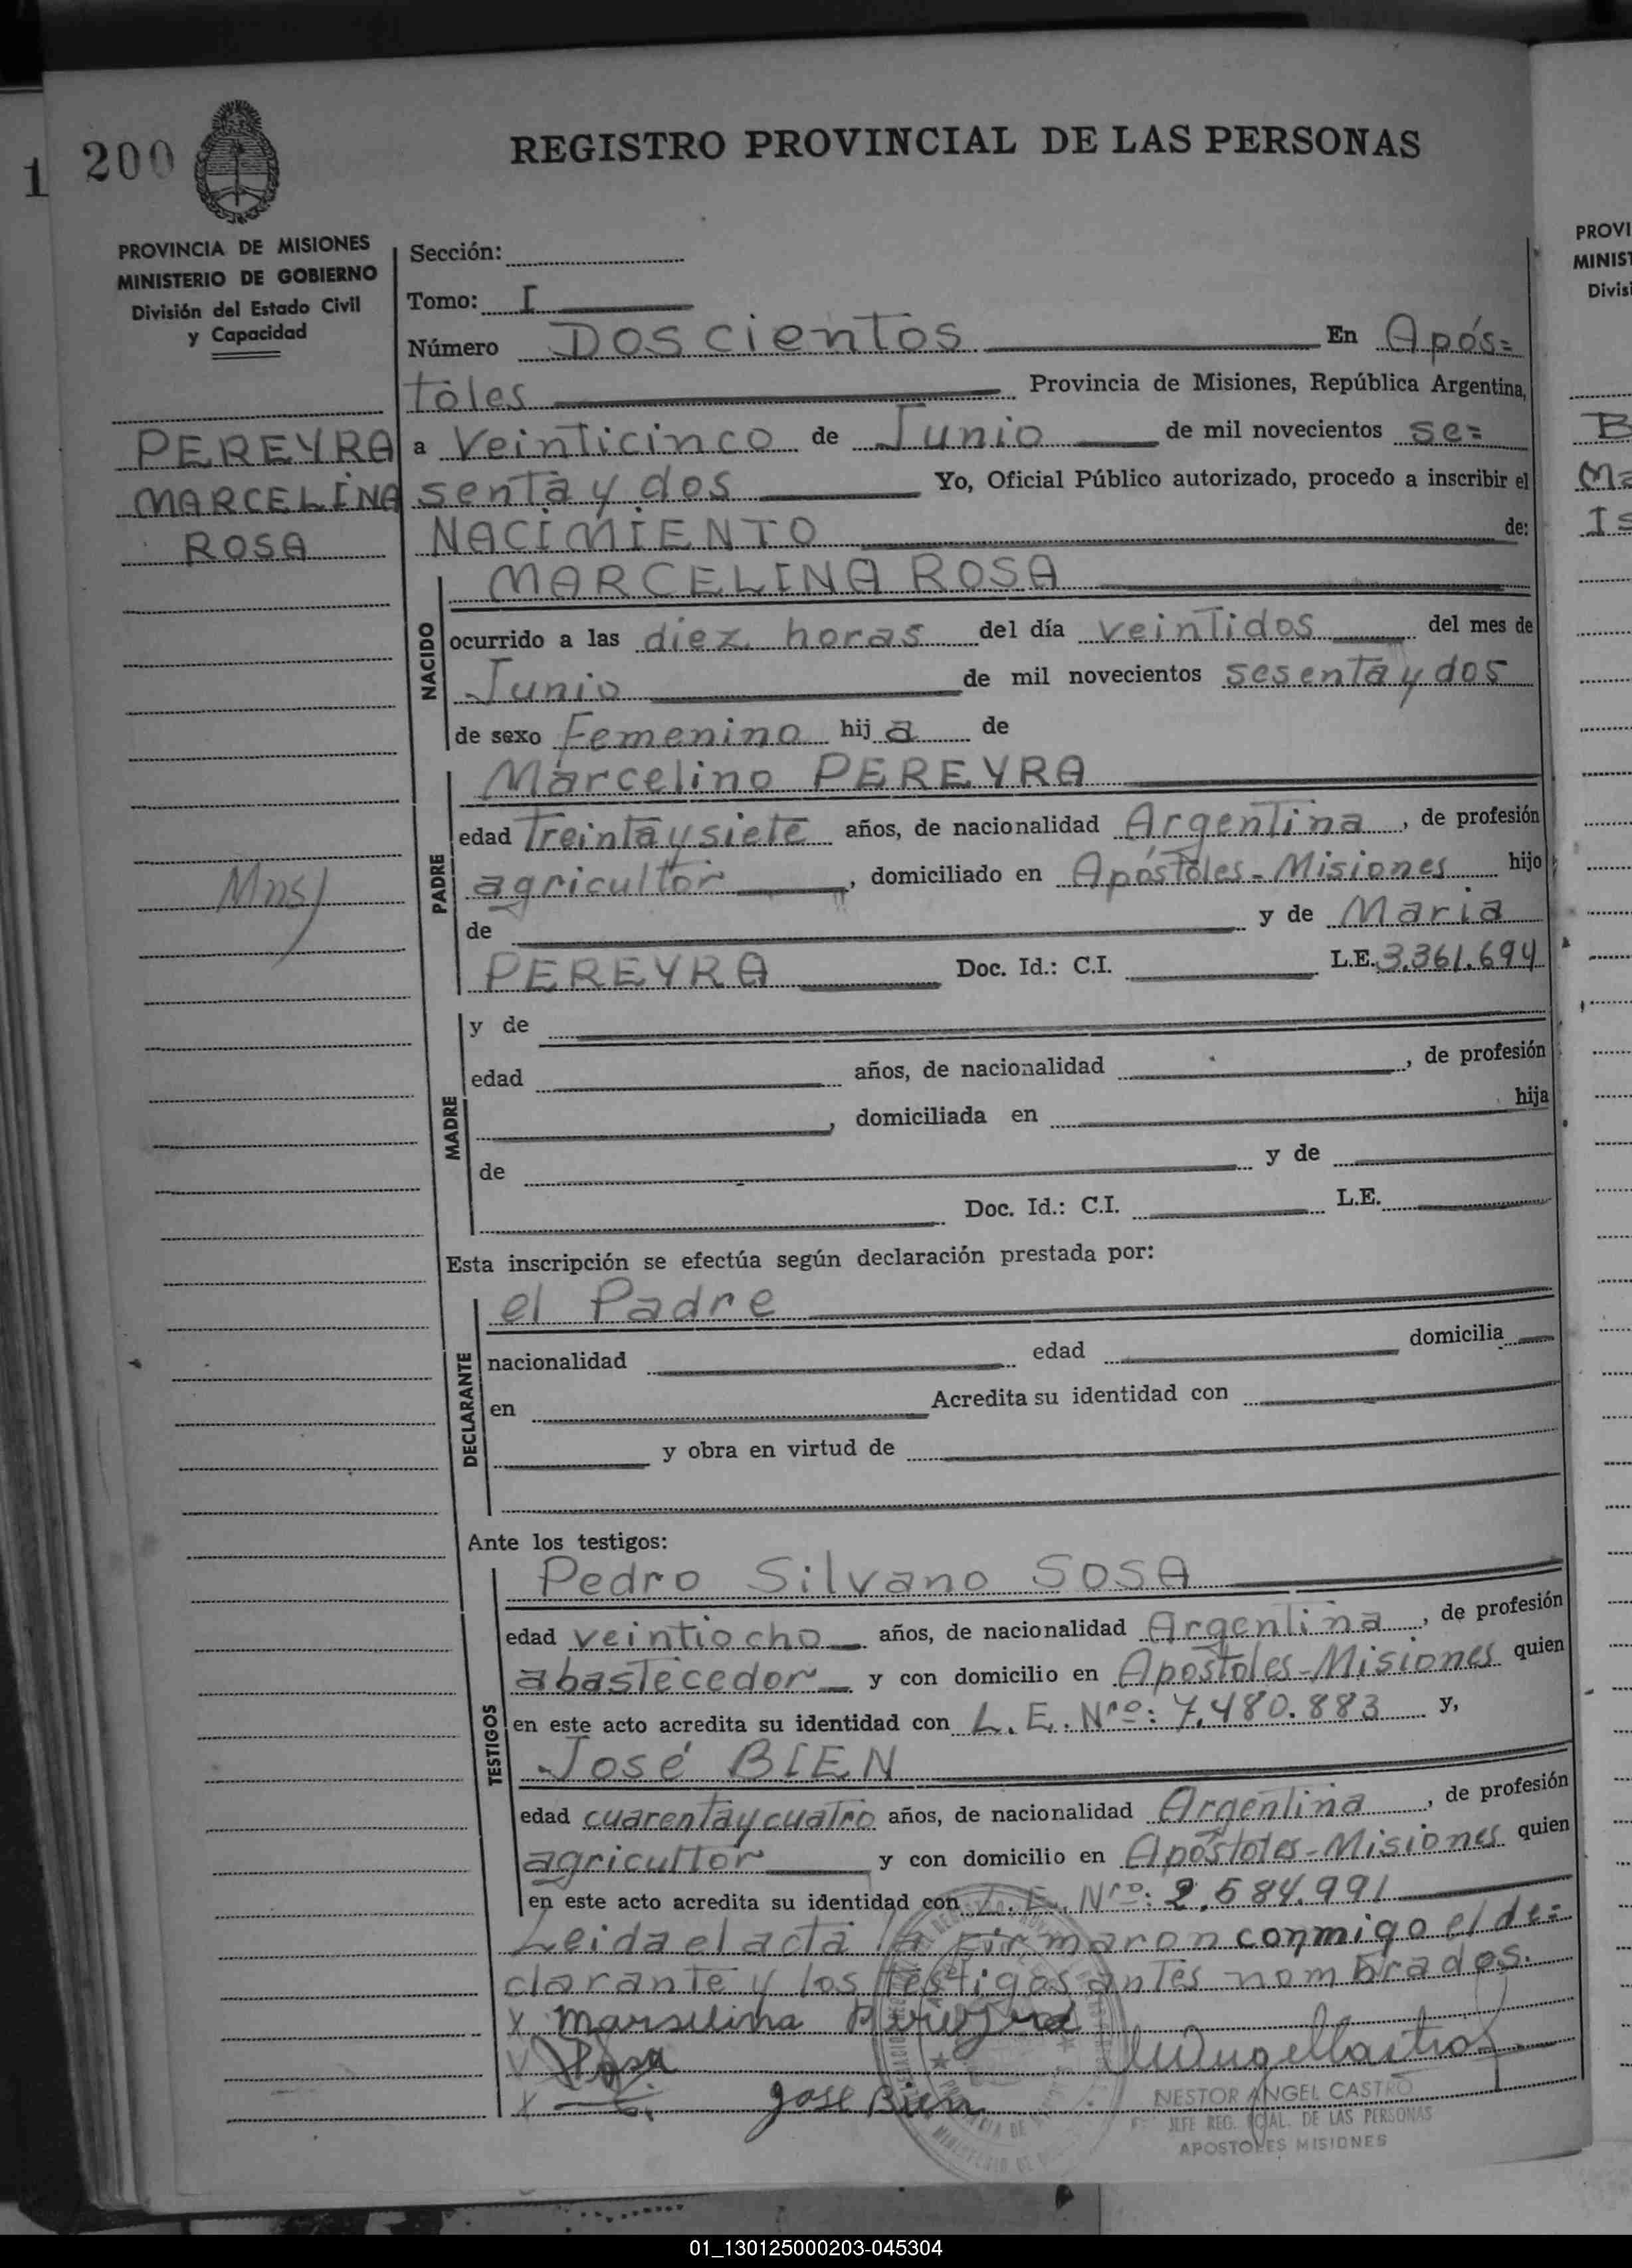 1
200
REGISTRO PROVINCIAL DE LAS PERSONAS
PROVINCIA DE MISIONES
MINISTERIO DE GOBIERNO
División del Estado Civil
y Capacidad
PEREYRA
MARCELINA
ROSA
Mns)
Sección:
Tomo: I
Número Doscientos En Após=
toles Provincia de Misiones, República Argentina,
a veinticinco de Junio de mil novecientos se=
senta y dos Yo, Oficial Público autorizado, procedo a inscribir el
NACIMIENTO de:
NACIDO
MARCELINA ROSA
ocurrido a las diez horas del día veintidos del mes de
Junio de mil novecientos sesenta y dos
de sexo Femenino hij a de
PADRE
Marcelino PEREYRA
edad treinta y siete años, de nacionalidad Argentina, de profesión
agricultor, domiciliado en Apóstoles - Misiones hijo
de y de Maria
PEREYRA Doc. Id.: C.I. L.E. 3.361.694
MADRE
y de
edad años, de nacionalidad , de profesión
, domiciliada en hija
de y de
Doc. Id.: C.I. L.E.
Esta inscripción se efectúa según declaración prestada por:
DECLARANTE
el Padre
nacionalidad edad domicilia
en Acredita su identidad con
y obra en virtud de
Ante los testigos:
TESTIGOS
Pedro Silvano SOSA
edad veintiocho años, de nacionalidad Argentina, de profesión
abastecedor y con domicilio en Apostoles - Misiones quien
en este acto acredita su identidad con L. E. Nrº: 7.480.883 y,
José BIEN
edad cuarenta y cuatro años, de nacionalidad Argentina, de profesión
agricultor y con domicilio en Apóstoles - Misiones quien
en este acto acredita su identidad con L. E. Nrº: 2.584.991
Leida el acta la firmaron conmigo el de=
clarante y los testigos antes nombrados.
x marselina Pereyra
x Sosa
x Jose Bien
NESTOR ANGEL CASTRO
JEFE REG. PCIAL. DE LAS PERSONAS
APOSTOLES MISIONES
PROVI
MINIST
Divisi
B
Ma
Is
01_130125000203-045304